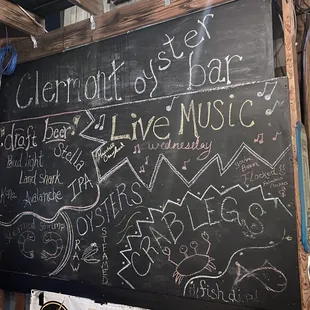 Clermont oyster bar
draft beer
Bud light
Land Shark
Avalanche
Stella
IPA
Live Music
Wednesday
OYSTERS
RAW
STEAMED
Steamed Shrimp
CRAB LEGS
fish dip